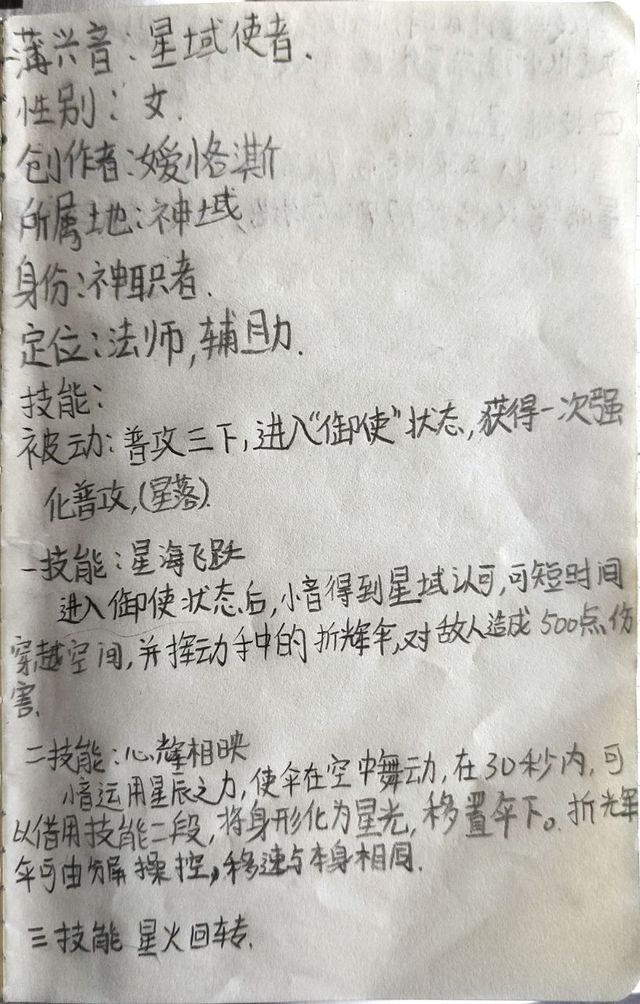 蒲兴音：星域使者.
性别：女.
创作者：嫒恪澌
所属地：神域.
身份：神职者.
定位：法师,辅助.
技能：
被动：普攻三下,进入“御使”状态,获得一次强
化普攻,(星落).
一技能：星海飞跃
进入御使状态后,小音得到星域认可,可短时间
穿越空间,并挥动手中的折辉伞,对敌人造成500点伤
害.
二技能：心辉相映
小音运用星辰之力,使伞在空中舞动,在30秒内,可
以借用技能二段,将身形化为星光,移置伞下。折光辉
伞可由分屏操控,移速与本身相同.
三技能 星火回转.